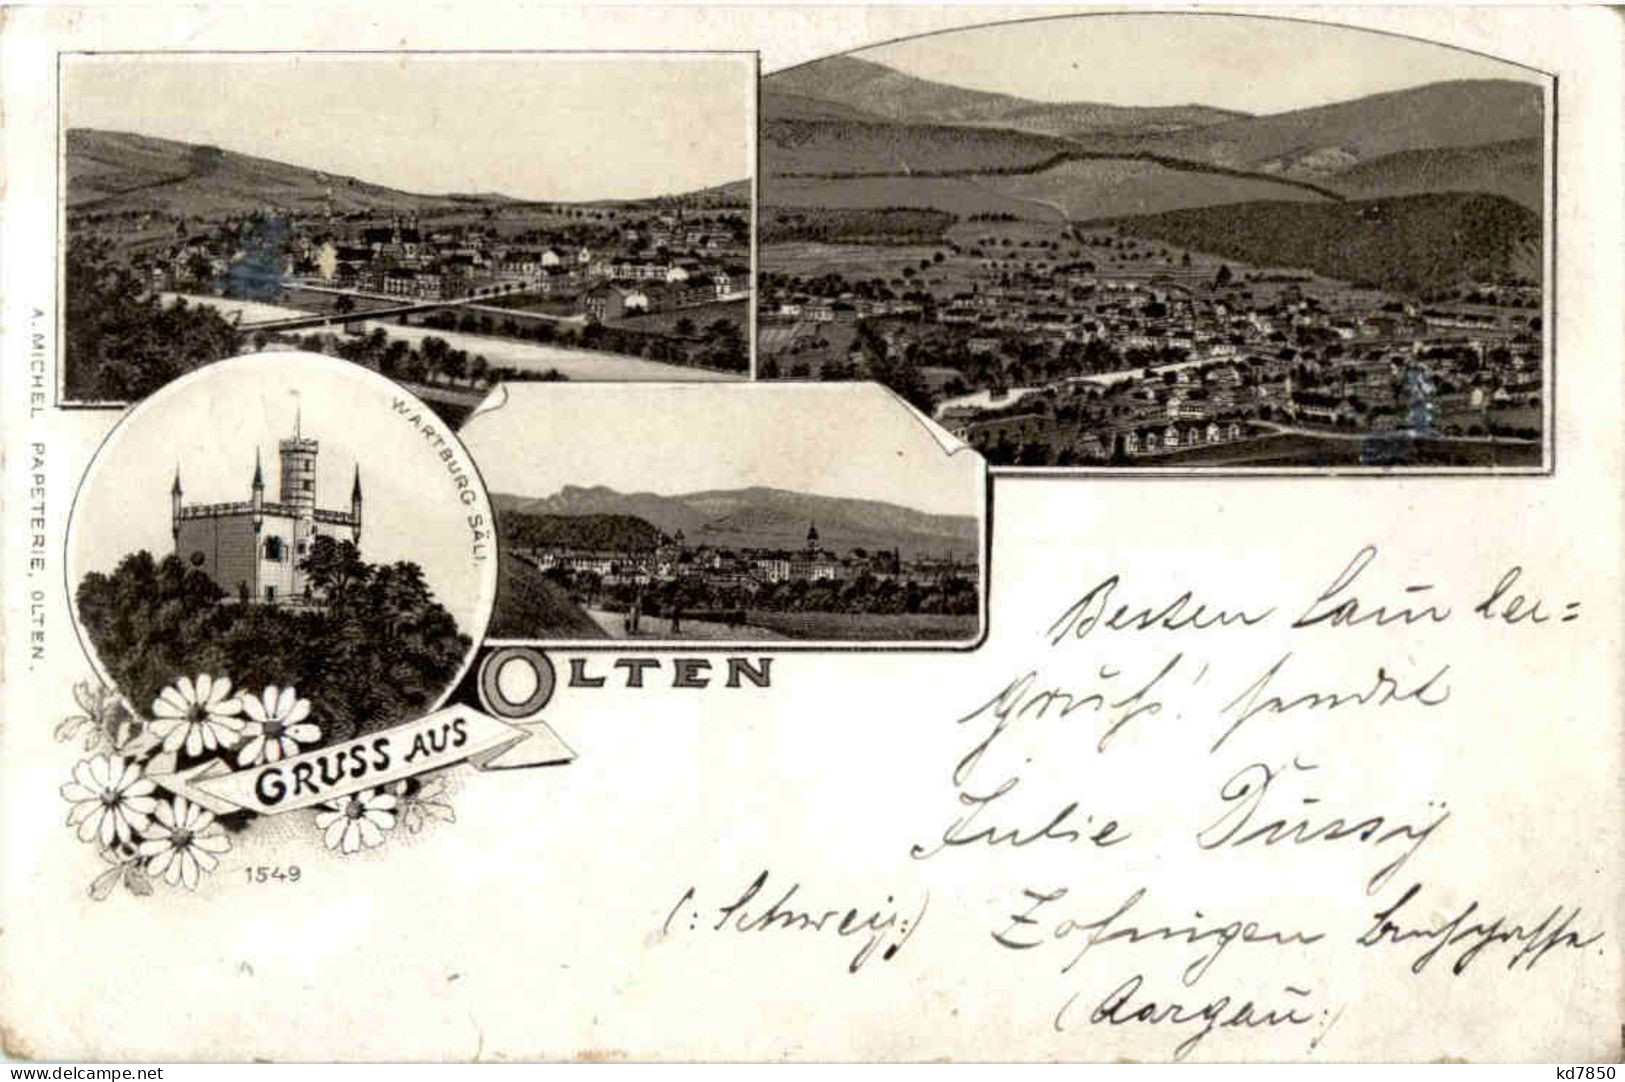 A. MICHEL PAPETERIE, OLTEN.
WARTBURG SÄLI.
OLTEN
GRUSS AUS
1549
Besten
Gruß! sendet
Julie Düssy
(: Schweiz :) Zofingen
(Aargau :)
delcampe.net
kd7850